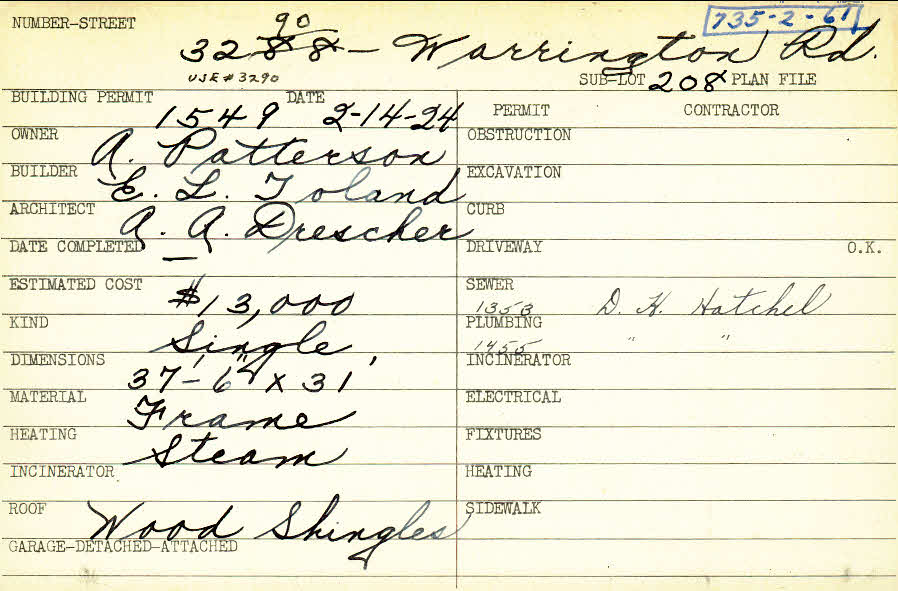 NUMBER-STREET 90 735-2-61
3288 - Warrington Rd.
USE #3290 SUB-LOT 208 PLAN FILE
BUILDING PERMIT DATE PERMIT CONTRACTOR
1549 2-14-24
OWNER A. Patterson OBSTRUCTION
BUILDER E. L. Toland EXCAVATION
ARCHITECT A. A. Drescher CURB
DATE COMPLETED — DRIVEWAY O.K.
ESTIMATED COST $13,000 SEWER
1353 D. H. Hatchel
KIND Single PLUMBING
1455 " "
DIMENSIONS 37'-6" x 31' INCINERATOR
MATERIAL Frame ELECTRICAL
HEATING Steam FIXTURES
INCINERATOR HEATING
ROOF Wood Shingles SIDEWALK
GARAGE-DETACHED-ATTACHED